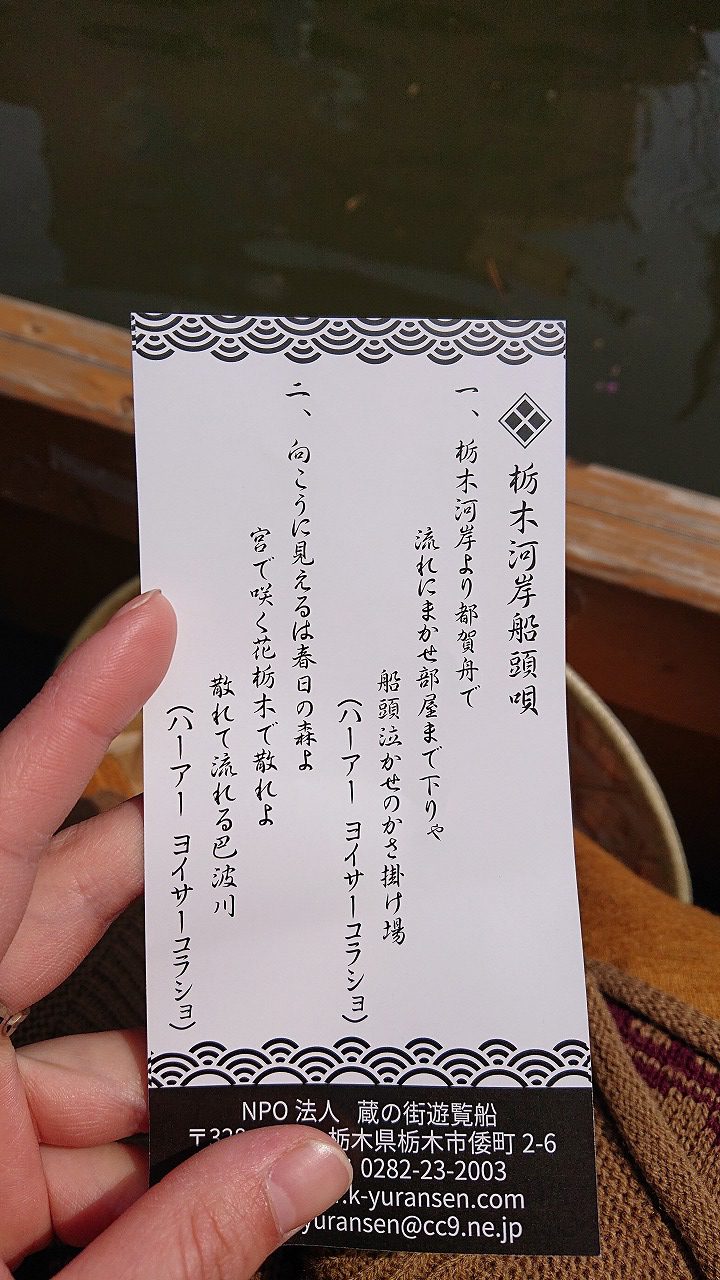 栃木河岸船頭唄
一、栃木河岸より都賀舟で
流れにまかせ部屋まで下りや
船頭泣かせのかさ掛け場
（ハーアー ヨイサーコラショ）
二、向こうに見えるは春日の森よ
宮で咲く花栃木で散れよ
散れて流れる巴波川
（ハーアー ヨイサーコラショ）
NPO 法人 蔵の街遊覧船
栃木県栃木市倭町 2-6
0282-23-2003
k-yuransen.com
yuransen@cc9.ne.jp